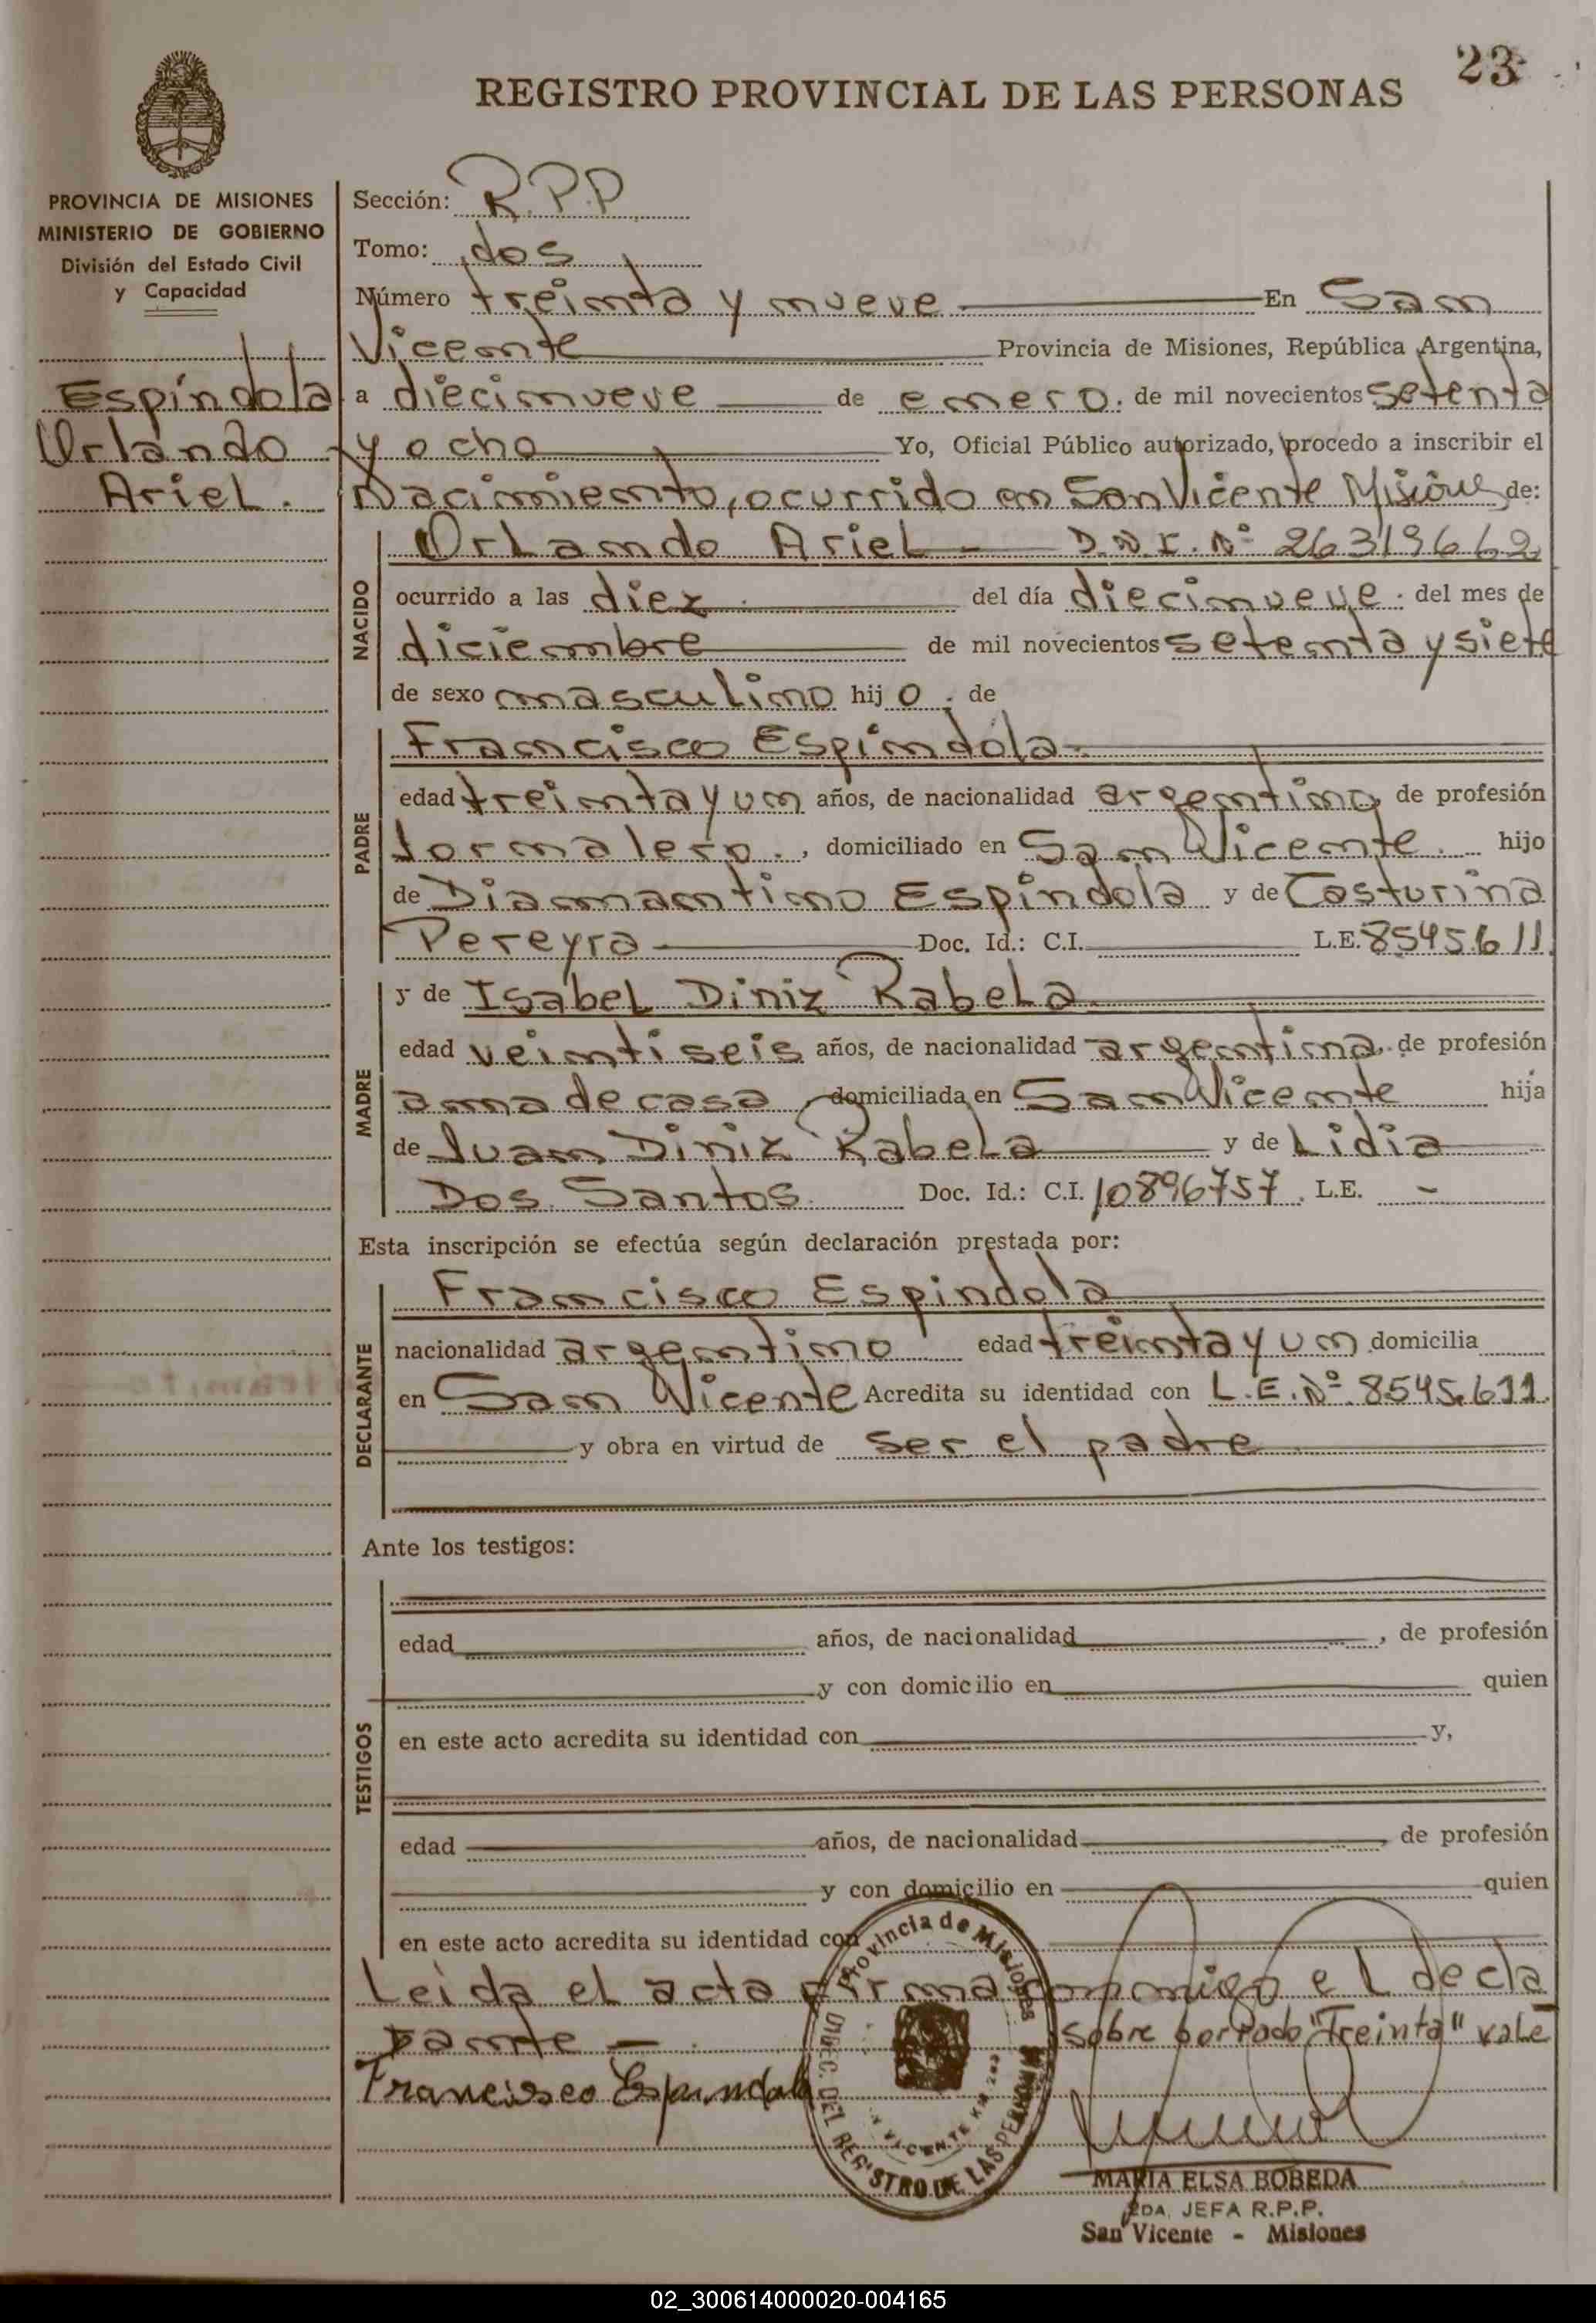 23
REGISTRO PROVINCIAL DE LAS PERSONAS
PROVINCIA DE MISIONES
MINISTERIO DE GOBIERNO
División del Estado Civil
y Capacidad
Espíndola
Orlando
Ariel.
Sección: R.P.P
Tomo: dos
Número treinta y nueve En San
Vicente Provincia de Misiones, República Argentina,
a diecinueve de enero. de mil novecientos setenta
y ocho Yo, Oficial Público autorizado, procedo a inscribir el
Nacimiento, ocurrido en San Vicente Misiones de:
NACIDO
Orlando Ariel - D.N.I. Nº 26319662
ocurrido a las diez. del día diecinueve. del mes de
diciembre de mil novecientos setenta y siete
de sexo masculino hij o. de
PADRE
Francisco Espíndola.
edad treinta y un años, de nacionalidad argentino, de profesión
Jornalero., domiciliado en San Vicente. hijo
de Diamantino Espíndola y de Casturina
Pereyra Doc. Id.: C.I. L.E. 8545.611
MADRE
y de Isabel Diniz Rabela
edad veintiseis años, de nacionalidad argentina, de profesión
ama de casa, domiciliada en San Vicente hija
de Juan Diniz Rabela y de Lidia
Dos Santos. Doc. Id.: C.I. 10896757. L.E. -
Esta inscripción se efectúa según declaración prestada por:
DECLARANTE
Francisco Espindola
nacionalidad argentino edad treinta y un domicilia
en San Vicente Acredita su identidad con L.E. Nº 8545.611.
y obra en virtud de ser el padre
Ante los testigos:
TESTIGOS
edad años, de nacionalidad , de profesión
y con domicilio en quien
en este acto acredita su identidad con y,
edad años, de nacionalidad , de profesión
y con domicilio en quien
en este acto acredita su identidad con
Leida el acta firma conmigo el decla
rante -
Sobre borrado "Treinta" vale
Francisco Espindola
Provincia de Misiones
DIREC. DEL REGISTRO DE LAS PERSONAS
MARIA ELSA BOBEDA
2DA. JEFA R.P.P.
San Vicente - Misiones
02_300614000020-004165